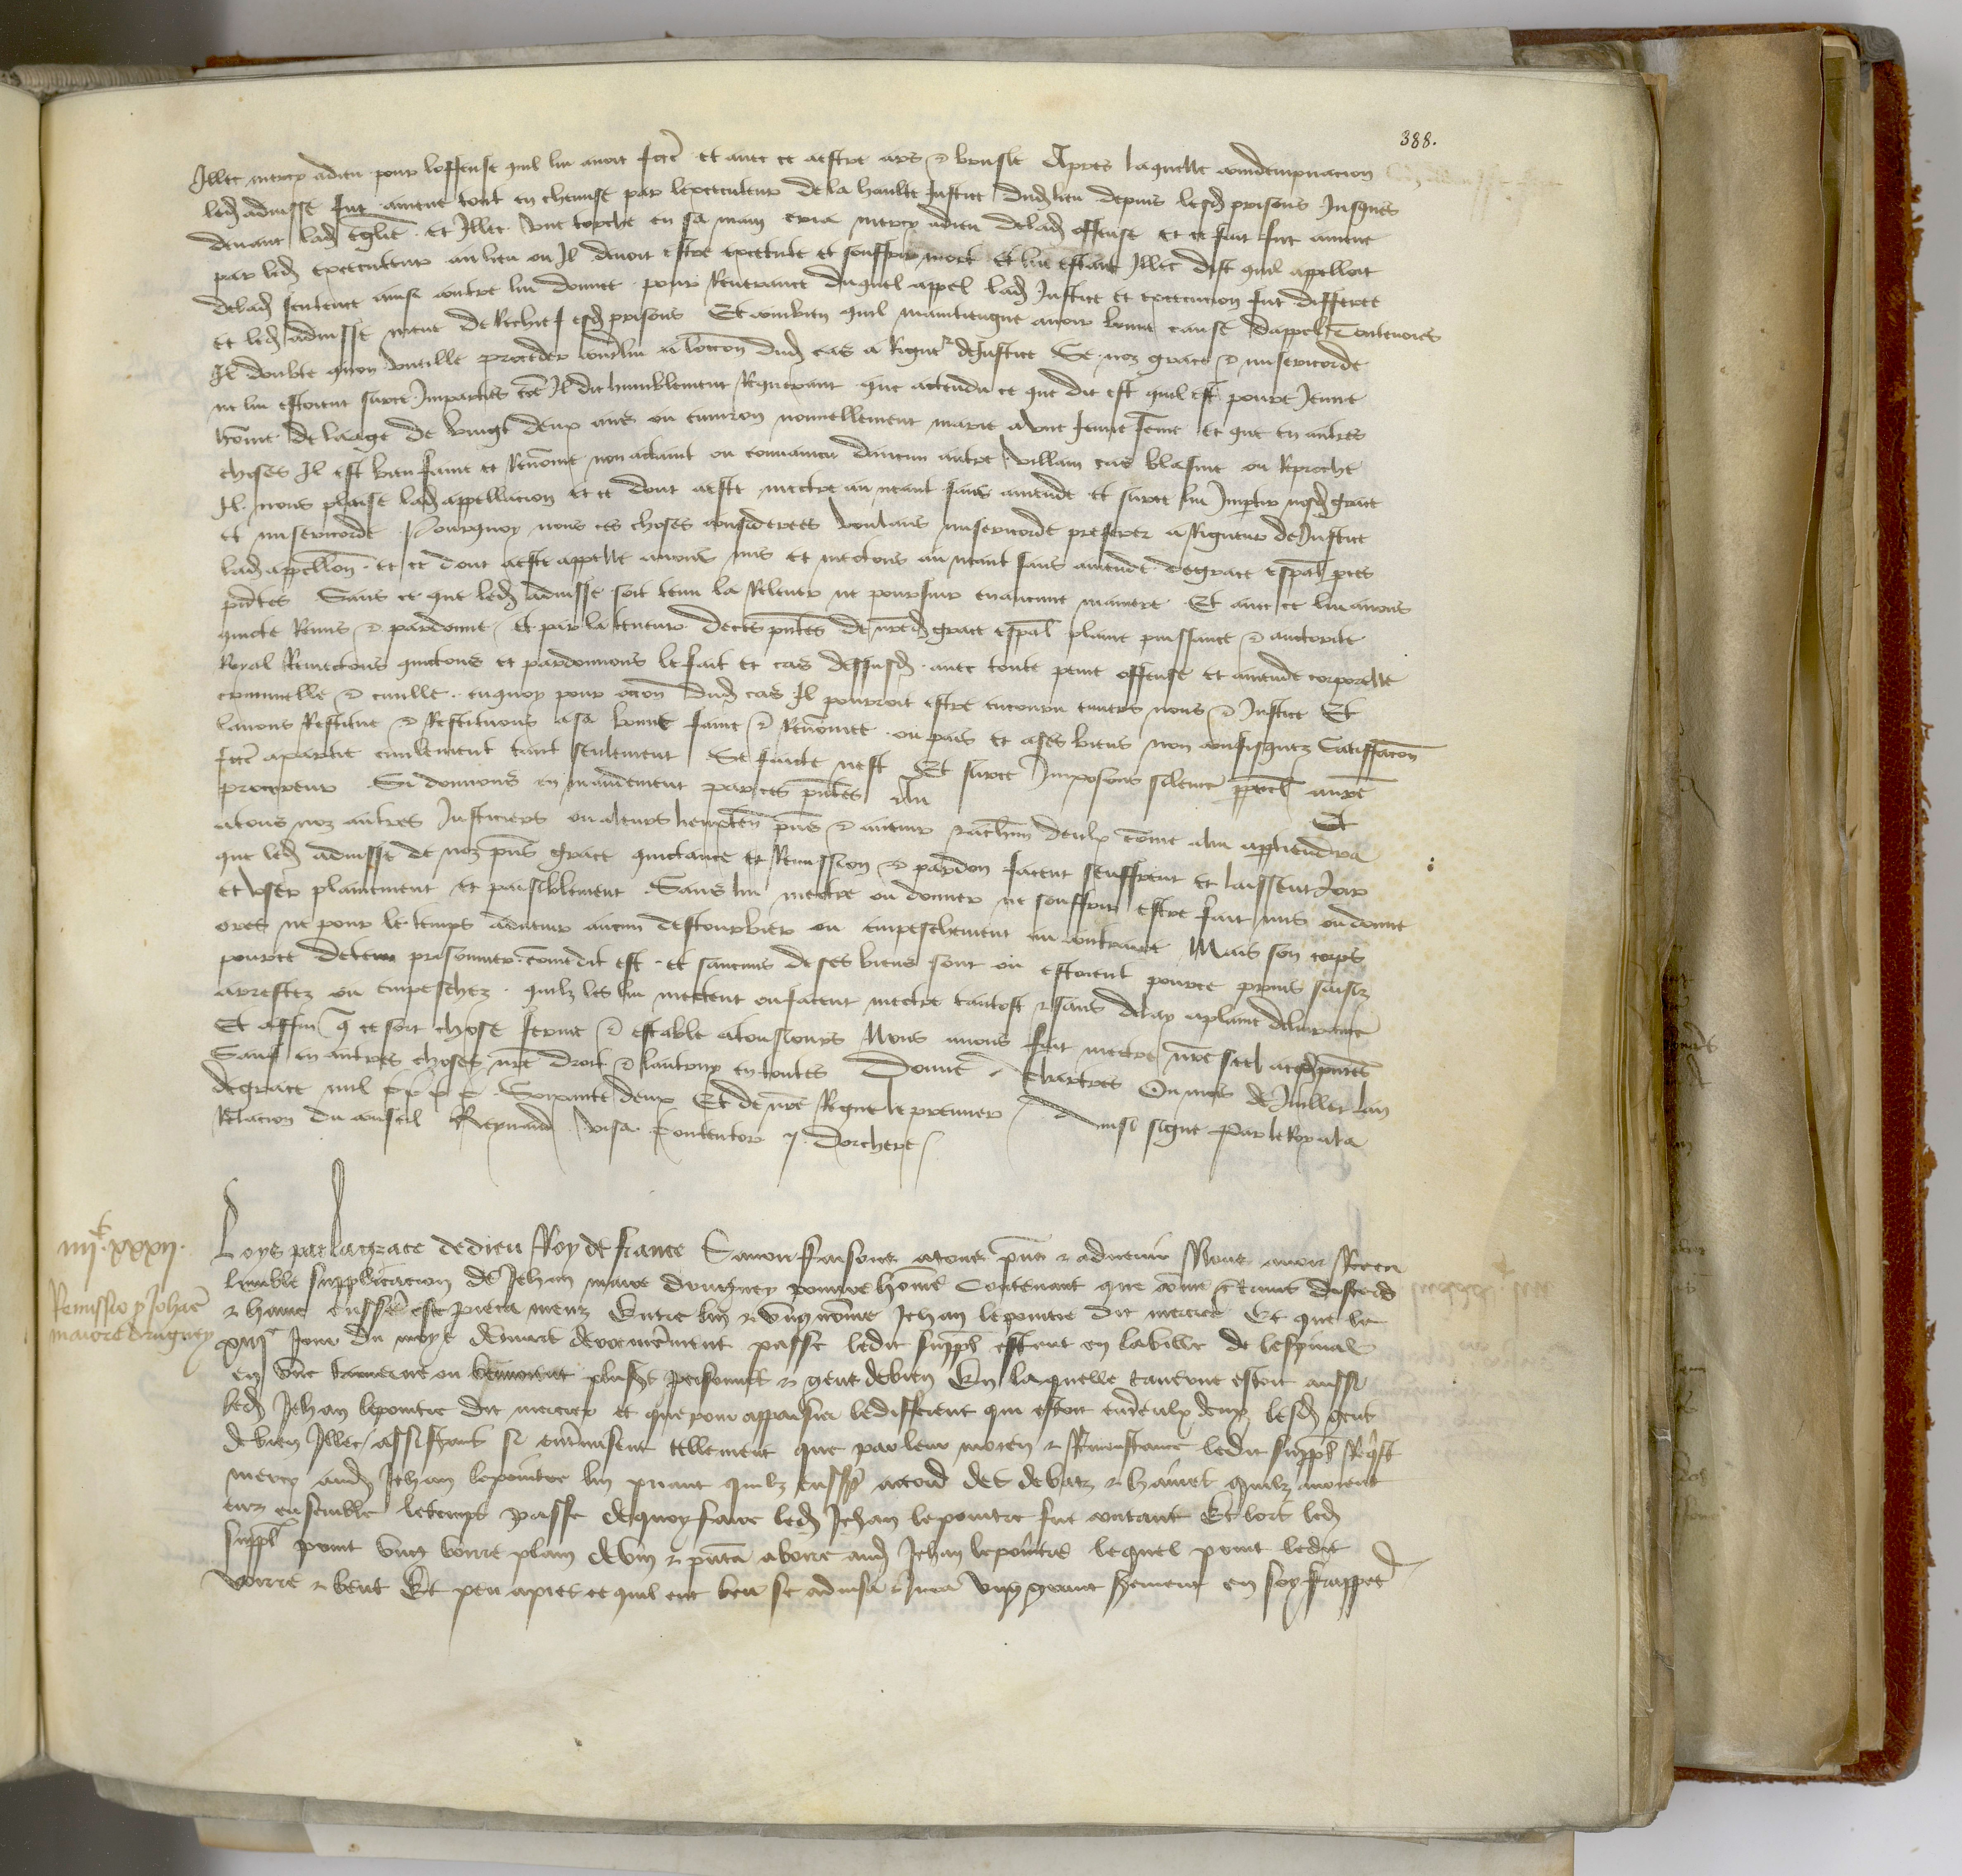 388.
Illec mercy a dieu pour loffense quil lui avoit fcte et avec ce a estre ars & brusle Apres laquelle condempnacion
led admisse fut amene tout en chemise par lexecuteur de la haulte Justice dud lieu depuis lesd prisons Jusques
devant lad eglise et Illec une torche en sa main cria mercy a dieu de lad offense et ce fait fut amene
par led executeur au lieu ou Il devoit estre execute et souffrir mort Et lui estant Illec dist quil appelloit
de lad sentence ainsi contre lui donnee pour Reverance duquel appel lad Justice et execucion fut differee
et led admisse mene de Rechief esd prisons Et combien quil maintiengne avoir bonne cause dappel toutevoies
Il doubte quon vueille proceder contre lui a loccon dud cas a Rigueur de Justice Se noz grace & misericorde
ne lui estoient sur ce Imparties come Il dit humblement Requerant que actendu ce que dit est quil est povre Jeune
home de laage de vingt deux ans ou environ nouvellement marie a une Jeune feme et que en autres
choses Il est bien fame et Renome non actaint ou convaincu daucun autre villain cas blasme ou Reproche
Il nous plaise lad appellacion et ce dont a este mectre au neant sans amende et sur ce lui Impartir nosd grace
et misericorde Pourquoy nous ces choses considerees voulans misericorde preferer a Rigueur de Justice
lad appellon et ce dont a este appelle avons mis et mectons au neant sans amende de grace espal par ces
pntes Sans ce que led admisse soit tenu la Relever ne poursuir en aucune maniere Et avec ce lui avons
quicte Remis & pardonne et par la teneur de ces pntes de nred grace espal plaine puissance & auctorite
Royal Remectons quictons et pardonnons le fait et cas dessusd avec toute peine offense et amende corporelle
criminelle & civille enquoy pour occon dud cas Il pourroit estre encouru envers nous & Justice Et
lavons Restitue & Restituons a sa bonne fame & Renomee au pais et a ses biens non confisquez Satisfacon
fcte a partie civilement tant seulement Se faicte nest Et sur ce Imposons silence ppetuel a nre
procureur Si donnons en mandement par ces pntes au Et
a tous noz autres Justiciers ou a leurs lieuxten pns & avenir & a chun deulx come a lui appartiendra
que led admisse de noz pns grace quictance et Remission & pardon facent seuffrent et laissent Joir
et user plainement et paisiblement Sans lui mectre ou donner ne souffrir estre fait mis ou donne
ores ne pour le temps advenir aucun destourbier ou empeschement au contraire Mais son corps
pour ce detenu prisonnier come dit est et saucuns de ses biens sont ou estoient pource prins saisiz
arrestez ou empeschez quilz les lui mectent ou facent mectre tantost & sans delay a plaine delivrance
Et affin que ce soit chose ferme & estable a tousiours Nous avons fait mectre nre seel a cesd pntes
Sauf en autres choses nre droit & lautruy en toutes Donne a Chartres Ou mois de Juillet lan
de grace mil cccc Soixante deux Et de nre Regne le premier Ainsi signe Par le Roy a la
Relacion du conseil Reynaud visa Contentor J. Dorchere

iiijc xxxij.
Remissio p Johne
maiore druguey
Loys par la grace de dieu Roy de france Savoir faisons a tous pns & advenir Nous avoir Receu
lumble supplicacion de Jehan maire druguey pouvre home Contenant que come certains discord
& haine eussent este pieca meuz Entre luy & ung nome Jehan lepointre dit mercier Et que le
xiiije Jour du moys de mars derrenierement passe ledit suppl estant en la ville de lespinal
en une taverne ou bevoient plus psonnes & gens de bien En laquelle taverne estoit aussi
led Jehan lepointre dit mercier et que pour appaisier le different qui estoit entreulx deux lesd gens
de bien Illec assistans si entremisrent tellement que par leur moien & Remonstrance ledit suppl Requist
mercy aud Jehan lepointre luy priant quilz eussent accord des debatz & haines quilz avoient
euz ensemble le temps passe de quoy faire led Jehan lepointre fut contant Et lors led
suppl print ung voirre plain de vin & pnta a boire aud Jehan lepointre lequel print ledit
voirre & beut Et peu apres ce quil eut beu se advisa & Jura ung grant serement en soy frappet